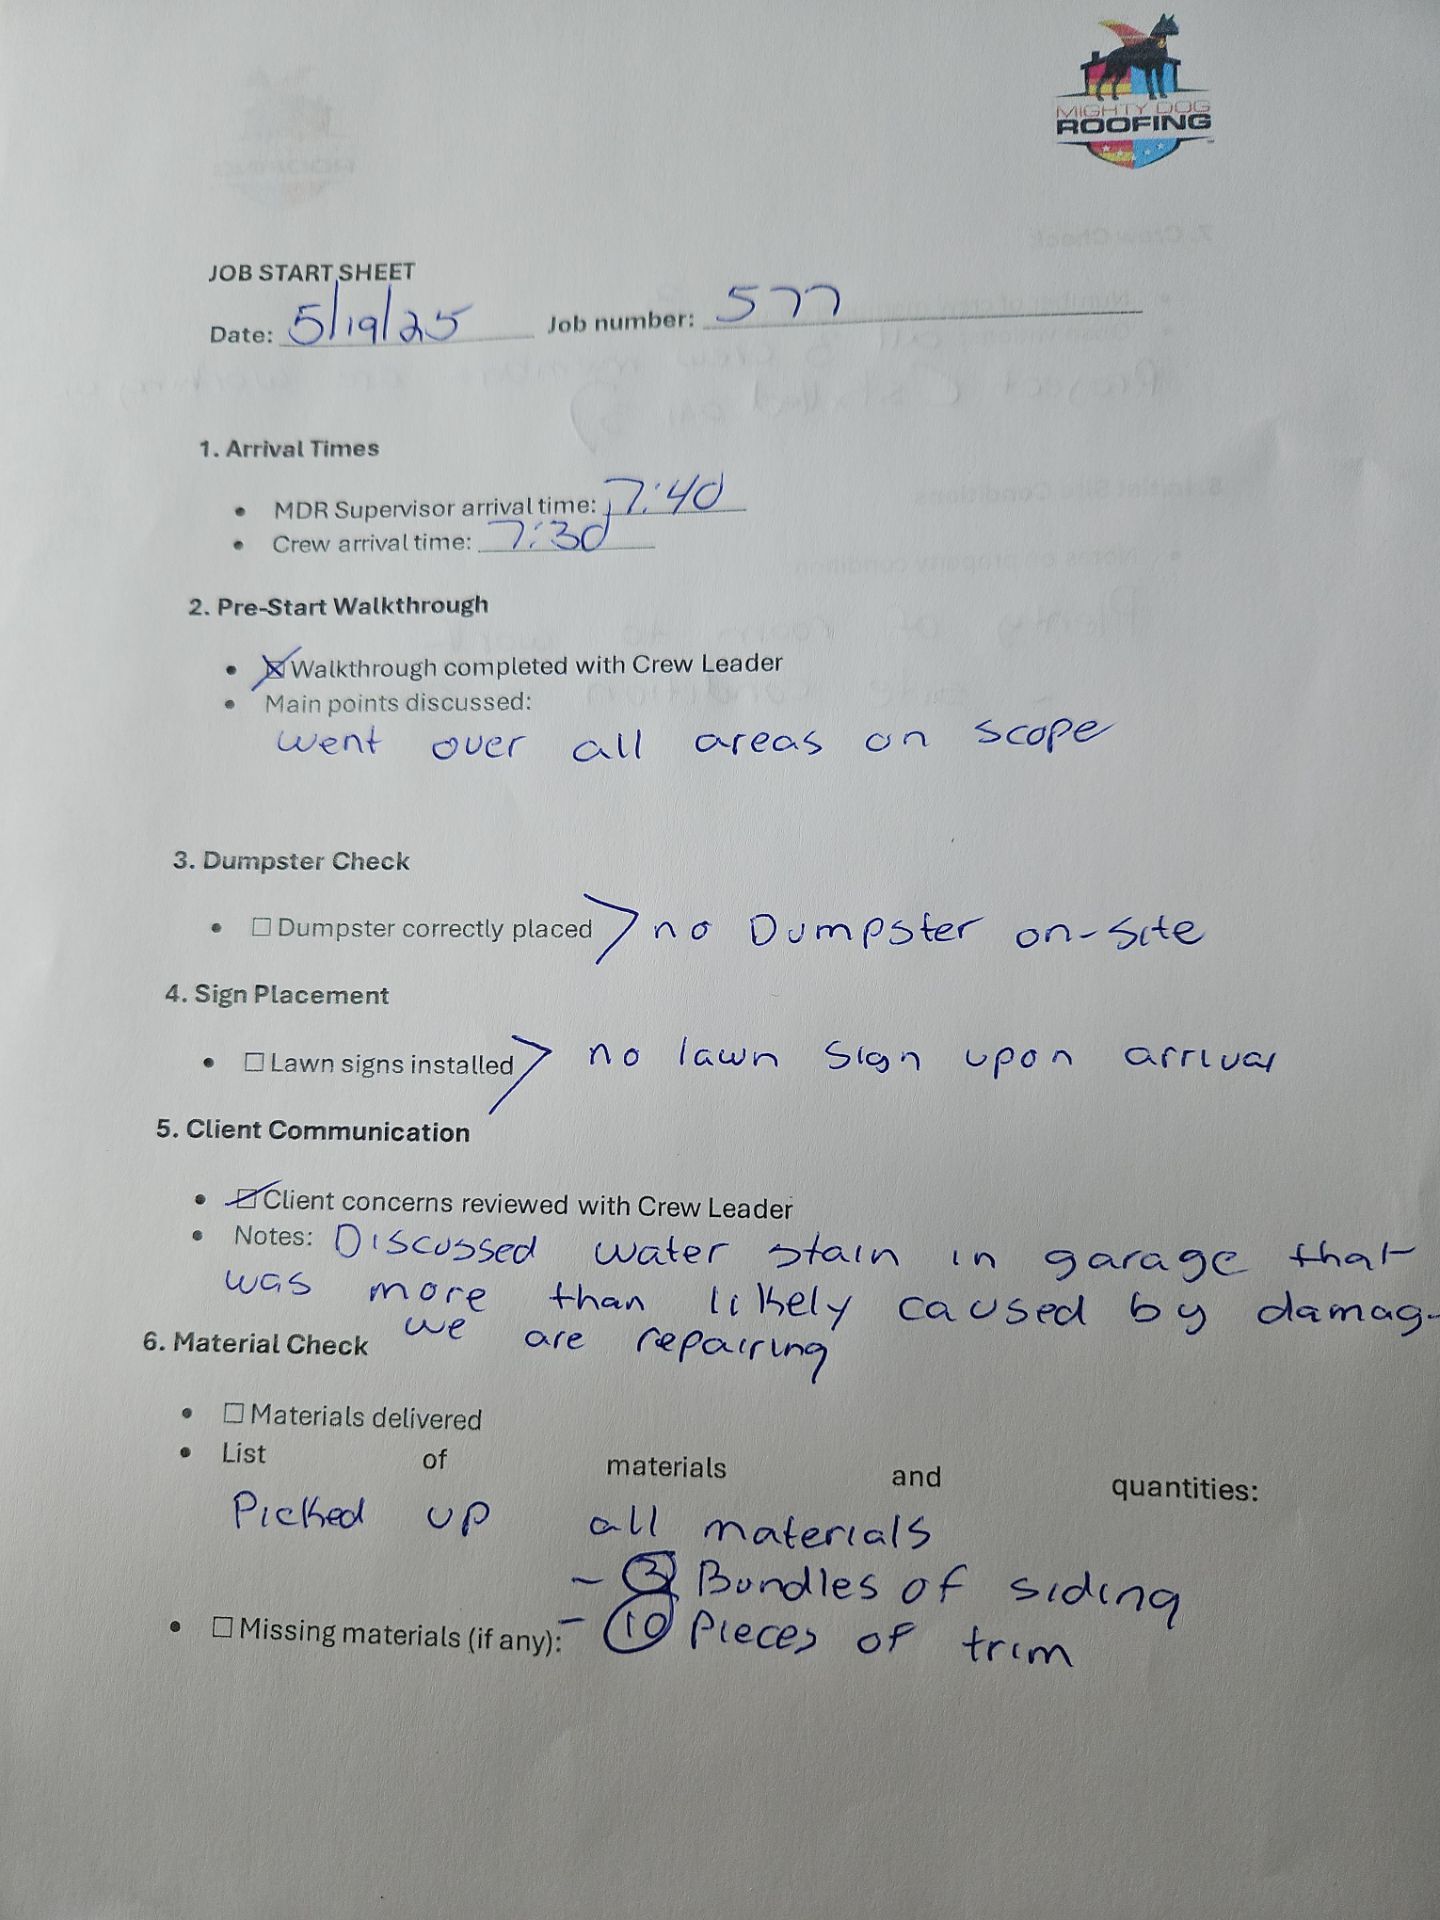 MIGHTY DOG
ROOFING
JOB START SHEET
Date: 5/19/25 Job number: 577
1. Arrival Times
• MDR Supervisor arrival time: 7:40
• Crew arrival time: 7:30
2. Pre-Start Walkthrough
• ☒ Walkthrough completed with Crew Leader
• Main points discussed:
went over all areas on scope
3. Dumpster Check
• ☐ Dumpster correctly placed > no Dumpster on-site
4. Sign Placement
• ☐ Lawn signs installed > no lawn sign upon arrival
5. Client Communication
• ☑ Client concerns reviewed with Crew Leader
• Notes: Discussed water stain in garage that
was more than likely caused by damag
we are repairing
6. Material Check
• ☐ Materials delivered
• List of materials and quantities:
Picked up all materials
- Bundles of siding
• ☐ Missing materials (if any): - 10 Pieces of trim